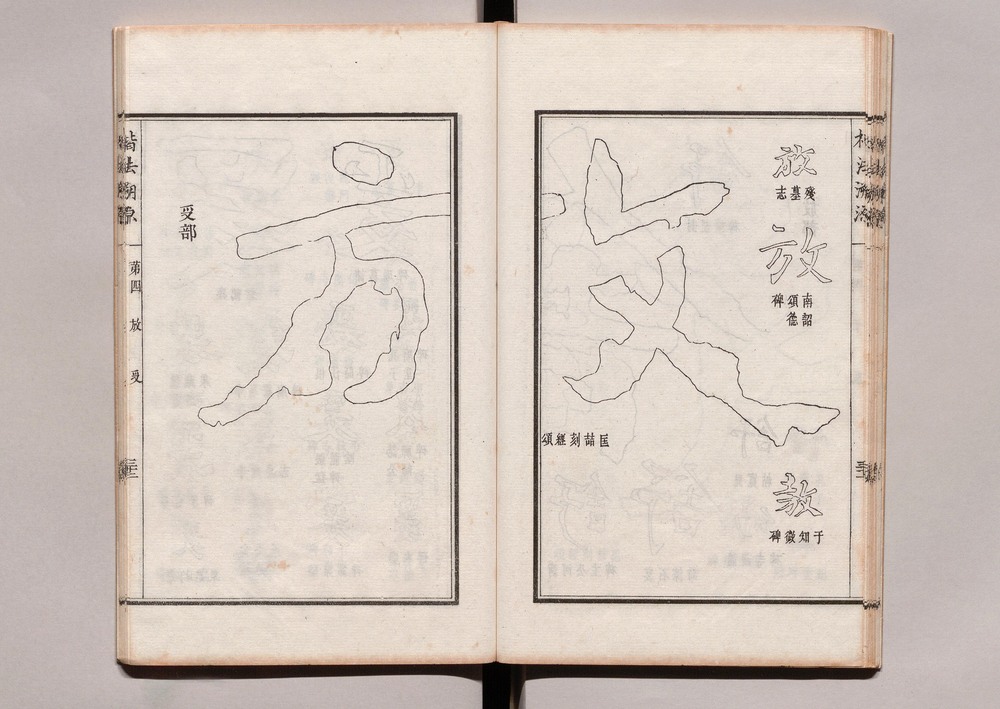 放
殘墓志
放
南詔
頌德
碑
敖
于知微碑
放
匡喆刻經頌
𠬪部
楷法溯原
第四 放 𠬪